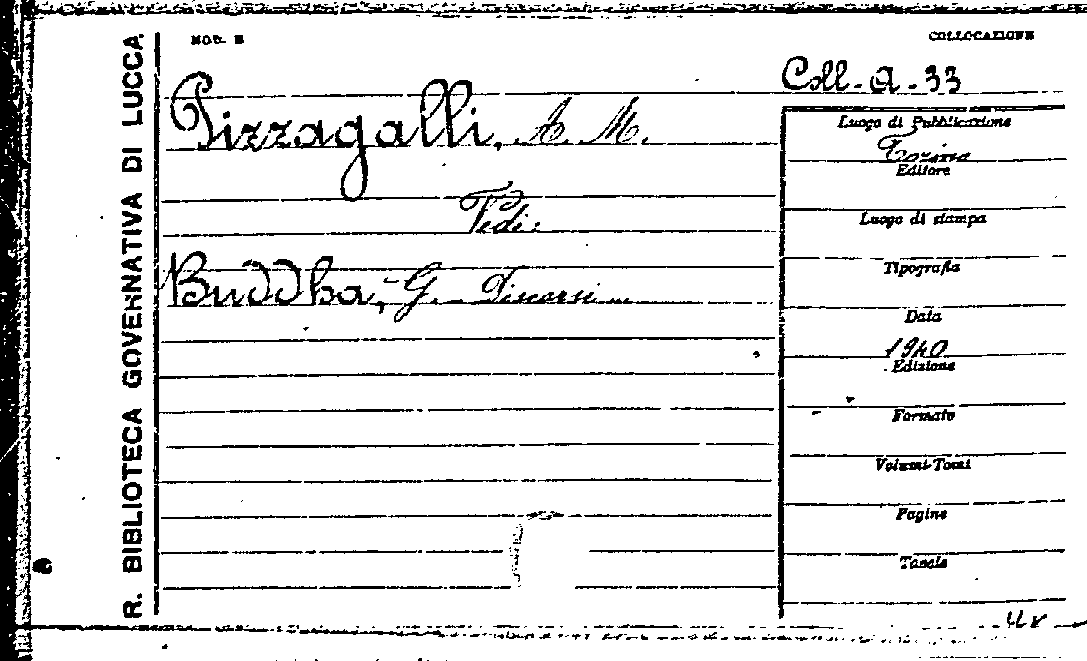 R. BIBLIOTECA GOVERNATIVA DI LUCCA
MOD. E
COLLOCAZIONE
Coll. A. 33
Pizzagalli, A. M.
Vedi:
Buddha, G. Discorsi...
Luogo di Pubblicazione
Torino
Editore
Luogo di stampa
Tipografia
Data
1940
Edizione
Formato
Volumi-Tomi
Pagine
Tavole